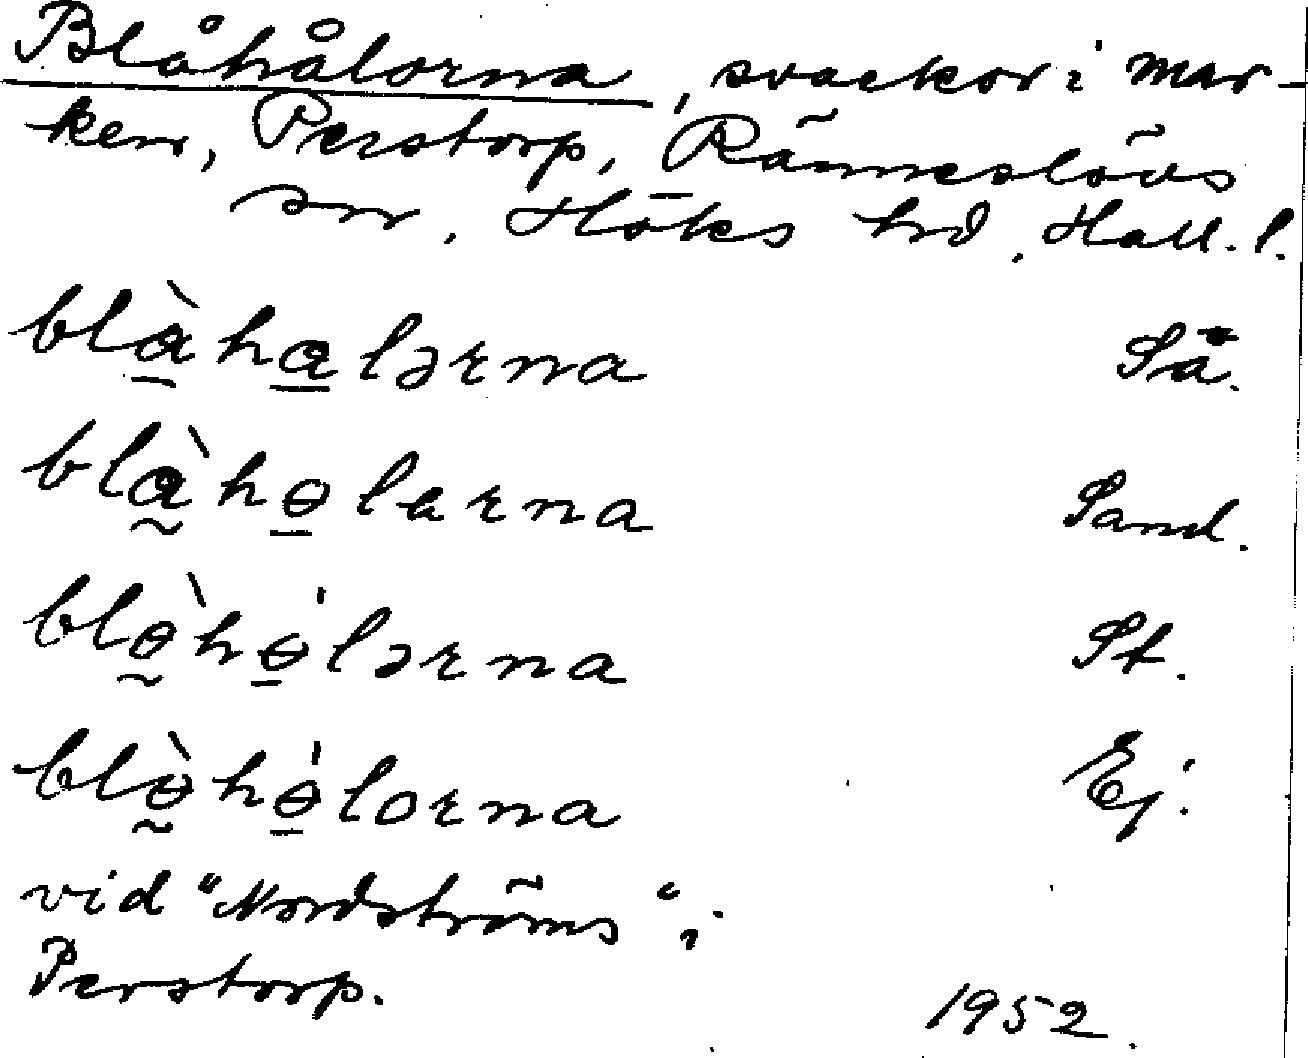 Blåhålorna, svackor i mar-
ken, Perstorp, Ränneslövs
sn, Höks hd, Hall. l.
blɑ̱̀hɑ̱lərna Så.
blɑ̰̀hɵ̱lɐrna Sand.
blɵ̰̀hɵ̱́lərna St.
blɵ̰̀hɵ̱́lorna Ej.
vid "Nordströms" i
Perstorp.
1952.